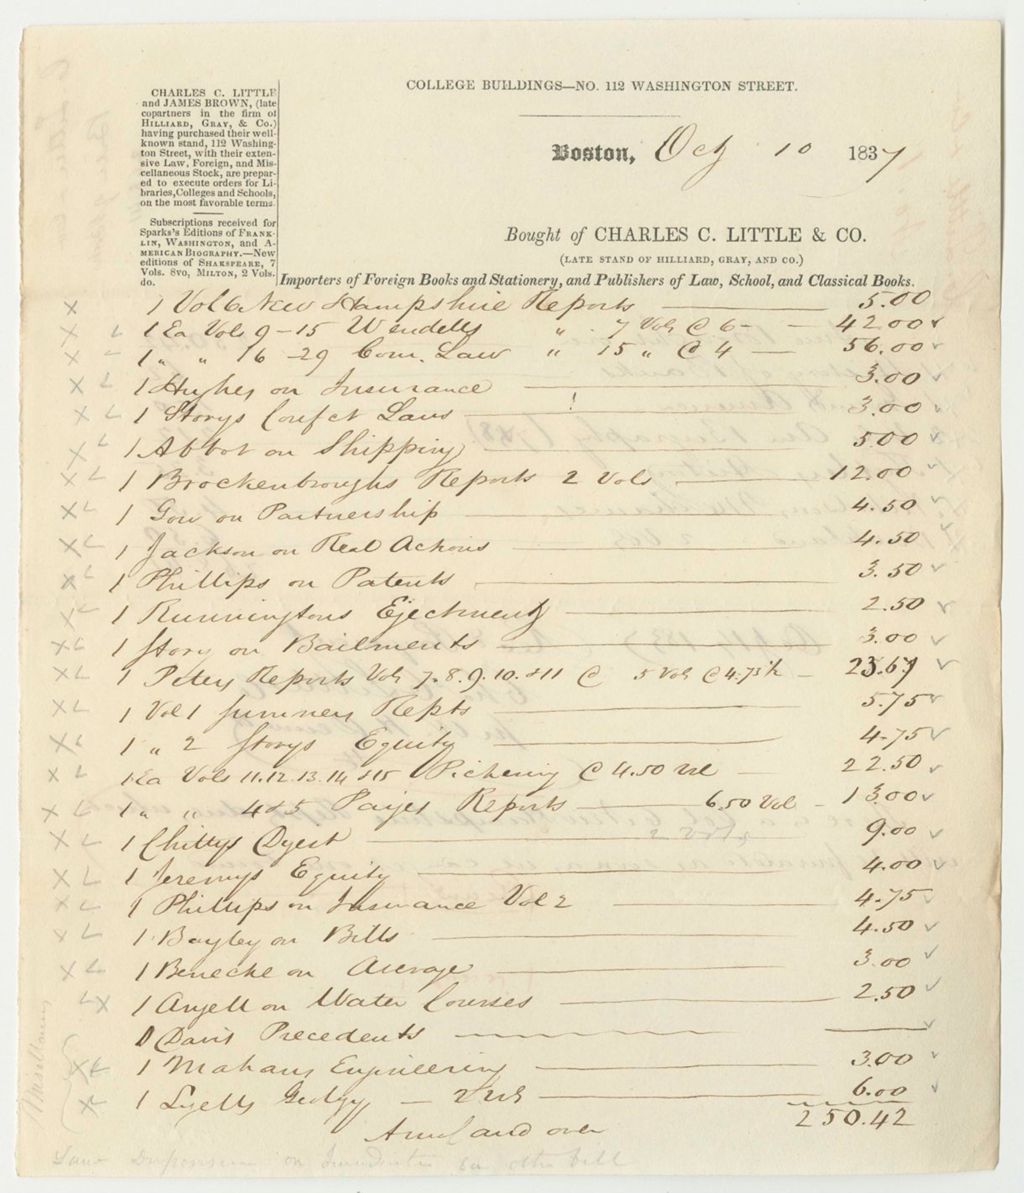 COLLEGE BUILDINGS—NO. 112 WASHINGTON STREET.
CHARLES C. LITTLE
and JAMES BROWN, (late
copartners in the firm of
HILLIARD, GRAY, & Co.)
having purchased their well-
known stand, 112 Washing-
ton Street, with their exten-
sive Law, Foreign, and Mis-
cellaneous Stock, are prepar-
ed to execute orders for Li-
braries, Colleges and Schools,
on the most favorable terms.
Subscriptions received for
Sparks's Editions of FRANK-
LIN, WASHINGTON, and A-
MERICAN BIOGRAPHY.—New
editions of SHAKSPEARE, 7
Vols. 8vo, MILTON, 2 Vols.
do.
Boston, Oct 10 1837
Bought of CHARLES C. LITTLE & CO.
(LATE STAND OF HILLIARD, GRAY, AND CO.)
Importers of Foreign Books and Stationery, and Publishers of Law, School, and Classical Books.
1 Vol 6 New Hampshire Reports 5.00
1 Ea Vols 9-15 Wendells " 7 Vols @ 6- 42.00
1 " " 16-29 Com. Law " 15 " @ 4 56.00
1 Hughes on Insurance 3.00
1 Storys Conflct Laws 3.00
1 Abbot on Shipping 5.00
1 Brockenbroughs Reports 2 Vols 12.00
1 Gow on Partnership 4.50
1 Jackson on Real Actions 4.50
1 Phillips on Patents 3.50
1 Runningtons Ejectment 2.50
1 Story on Bailments 3.00
1 Peters Reports Vols 7.8.9.10.&11 @ 5 Vols @ 4.73½ 23.67
1 Vol 1 Sumners Repts 5.75
1 " 2 Storys Equity 4.75
1 Ea Vols 11.12.13.14 &15 Pickering @ 4.50 22.50
1 " " 4 & 5 Paiges Reports 6.50 Vol 13.00
1 Chittys Digest 2 Vols 9.00
1 Jeremys Equity 4.00
1 Phillips on Insurance Vol 2 4.75
1 Bayley on Bills 4.50
1 Benecke on Average 3.00
1 Angell on Water Courses 2.50
Davis Precedents
1 Mahans Engineering 3.00
1 Lyells Geology 2 Vols 6.00
Amt and over 250.42
Law on other bill